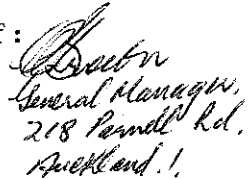 :
General Manager,
218 Parnell Rd,
Auckland.1.